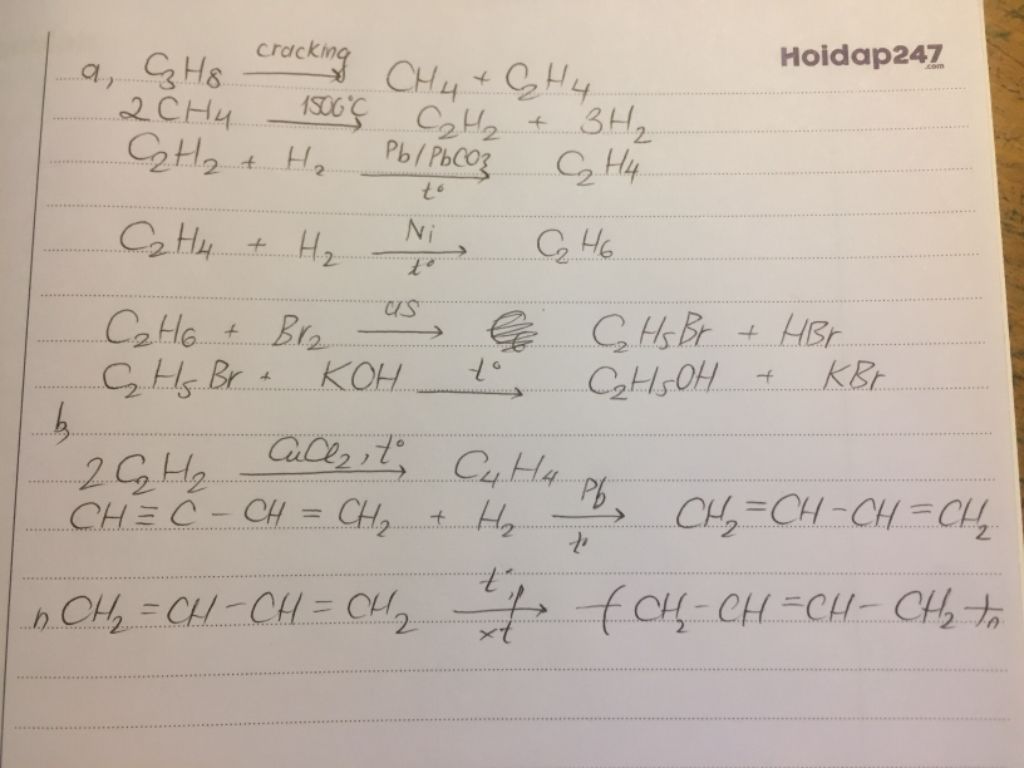 Hoidap247
.com
a, C3H8 cracking → CH4 + C2H4
2CH4 1500°C → C2H2 + 3H2
C2H2 + H2 Pb/PbCO3 → t° C2H4
C2H4 + H2 Ni → t° C2H6
C2H6 + Br2 as → C2H5Br + HBr
C2H5Br + KOH t° → C2H5OH + KBr
b,
2C2H2 CuCl2, t° → C4H4
CH≡C-CH=CH2 + H2 Pb → t° CH2=CH-CH=CH2
n CH2=CH-CH=CH2 t°, p → xt (CH2-CH=CH-CH2)n